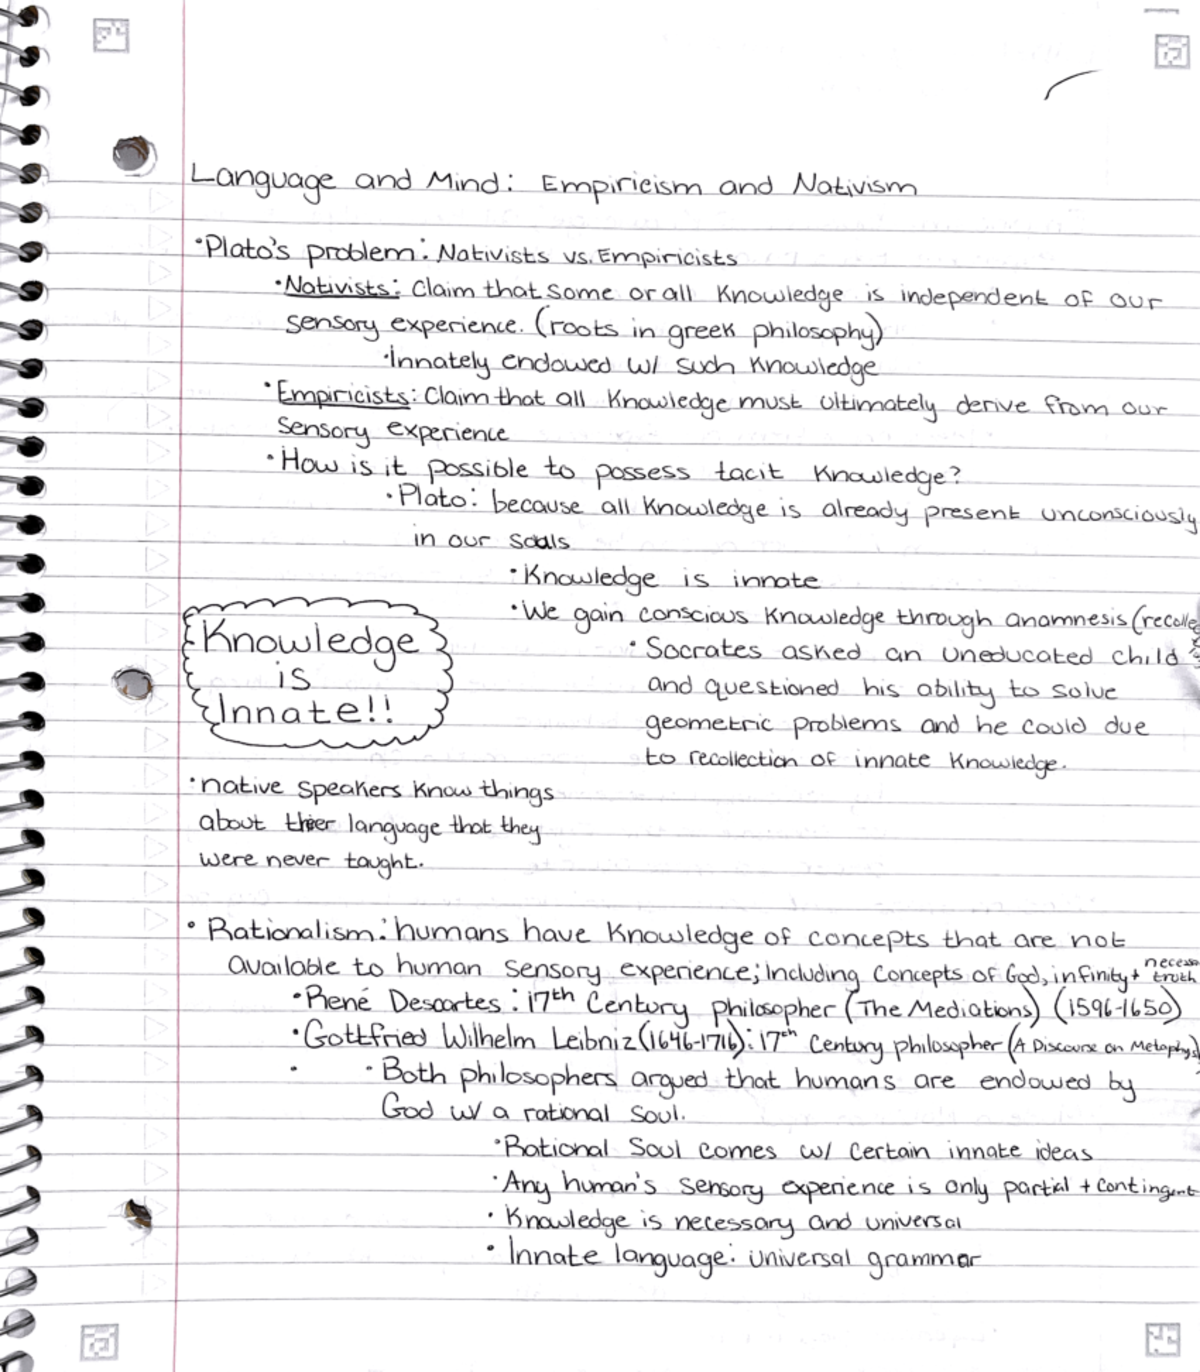 Language and Mind: Empiricism and Nativism
•Plato's problem: Nativists vs. Empiricists
•Nativists: Claim that some or all Knowledge is independent of our
sensory experience. (roots in greek philosophy)
•Innately endowed w/ such Knowledge
•Empiricists: Claim that all Knowledge must ultimately derive from our
sensory experience
•How is it possible to possess tacit Knowledge?
•Plato: because all Knowledge is already present unconsciously
in our souls
•Knowledge is innate
•We gain conscious Knowledge through anamnesis (recolle
•Socrates asked an uneducated child
and questioned his ability to solve
geometric problems and he could due
to recollection of innate Knowledge.
Knowledge
is
Innate!!
•native speakers know things
about thier language that they
were never taught.
•Rationalism: humans have Knowledge of concepts that are not
available to human sensory experience; including concepts of God, infinity + necess truth
•René Descartes: 17th Century philosopher (The Mediations) (1596-1650)
•Gottfried Wilhelm Leibniz (1646-1716): 17th Century philosopher (A Discourse on Metaphys)
• •Both philosophers argued that humans are endowed by
God w/ a rational soul.
•Rational Soul comes w/ certain innate ideas
•Any human's sensory experience is only partial + contingent
•Knowledge is necessary and universal
•Innate language: universal grammar